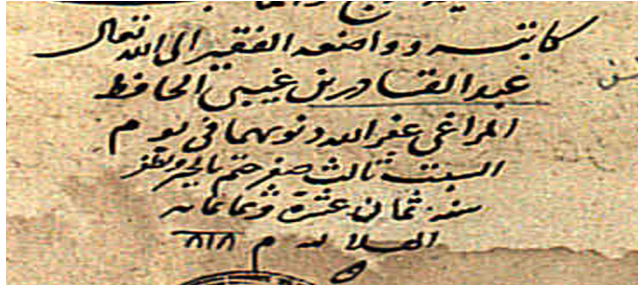 كاتبه وواضعه الفقير الى الله تعالى
عبد القادر بن غيبى الحافظ
المراغى غفر الله ذنوبهما فى يوم
السبت ثالث صفر ختم بالخير والظفر
سنة ثمان عشرة وثمانمائه
الهلاليه م ٨١٨